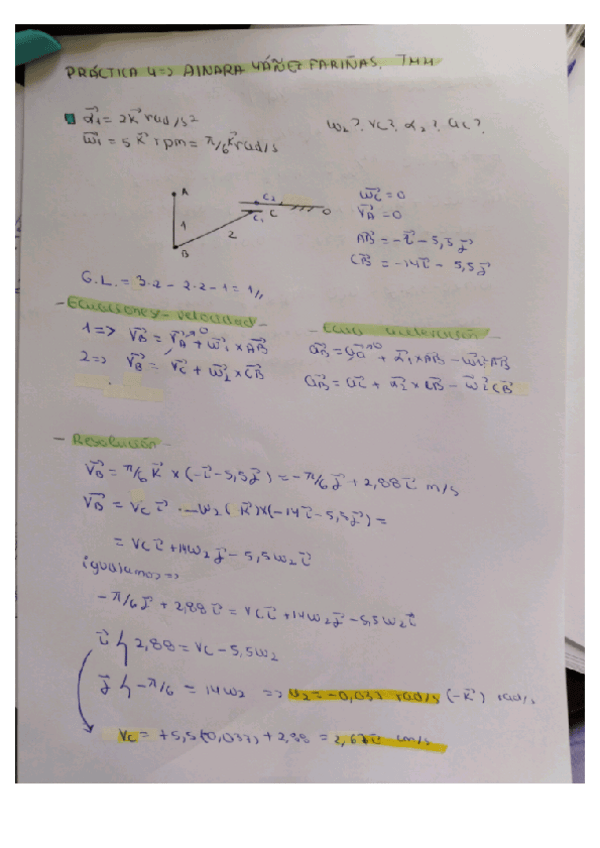 PRÁCTICA 4 => AINARA YÁÑEZ FARIÑAS. TMM
α₁ = 2k rad/s²
ω₂? vc? α₂? ac?
ω₁ = 5 k rpm = π/6 k rad/s
A
1
B
2
C₂
C₁
C
O
ωc = 0
VA = 0
AB = -i - 5,5j
CB = -14i - 5,5j
G.L. = 3·2 - 2·2 - 1 = 1//
- Ecuaciones - velocidad -
1 => VB = VA + ω₁ x AB
2 => VB = Vc + ω₂ x CB
aceleración -
aB = + α₁ x AB - ω₁² AB
aB = ac + α₂ x CB - ω₂² CB
- Resolución -
VB = π/6 k x (-i - 5,5j) = -π/6 j + 2,88i m/s
VB = Vc i - ω₂ (k) x (-14i - 5,5j) =
= Vc i + 14ω₂ j - 5,5ω₂ i
igualamos =>
-π/6 j + 2,88i = Vc i + 14ω₂ j - 5,5ω₂ i
i } 2,88 = Vc - 5,5ω₂
j } -π/6 = 14ω₂ => ω₂ = -0,037 rad/s (-k) rad/s
Vc = +5,5(0,037) + 2,88 = 2,67i cm/s